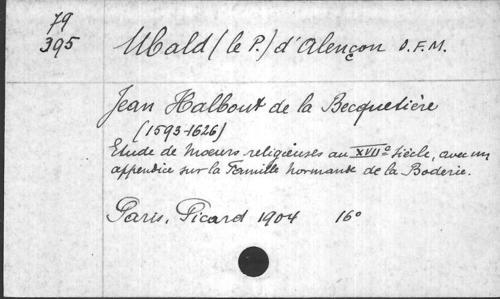 79
395
Ubald (le P.) d'Alençon O.F.M.
Jean Halbout de la Becquetière
(1593-1626)
Etude de Moeurs religieuses au XVIIe Siècle, avec un
appendice sur la Famille Normande de la Boderie.
Paris, Picard 1904 16°